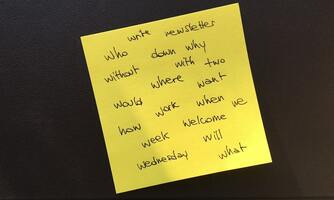 write newsletter
who down why
without with two
where want
would work when we
how week welcome
wednesday will what